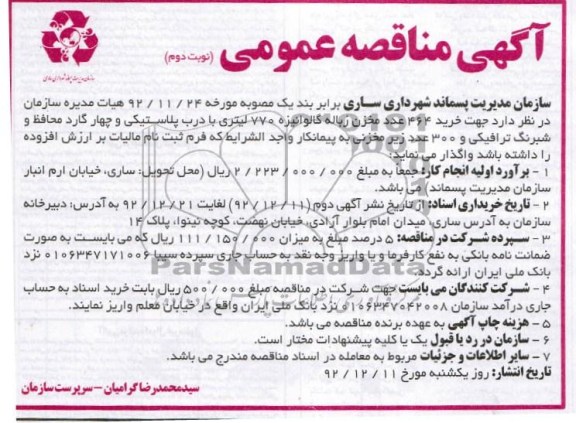 آگهی مناقصه عمومی (نوبت دوم)
سازمان مدیریت پسماند شهرداری ساری برابر بند یک مصوبه مورخه ۲۴ / ۱۱ / ۹۲ هیات مدیره سازمان
در نظر دارد جهت خرید ۴۶۴ عدد مخزن زباله گالوانیزه ۷۷۰ لیتری با درب پلاستیکی و چهار گارد محافظ و
شبرنگ ترافیکی و ۳۰۰ عدد زیر مخزنی به پیمانکار واجد الشرایط که فرم ثبت نام مالیات بر ارزش افزوده
را داشته باشد واگذار می نماید:
۱ - برآورد اولیه انجام کار: جمعاً به مبلغ ۰۰۰ / ۰۰۰ / ۲۲۳ / ۲ ریال (محل تحویل: ساری، خیابان ارم انبار
سازمان مدیریت پسماند) می باشد.
۲ - تاریخ خریداری اسناد: از تاریخ نشر آگهی دوم (۱۱ / ۱۲ / ۹۲) لغایت ۲۱ / ۱۲ / ۹۲ به آدرس: دبیرخانه
سازمان به آدرس ساری، میدان امام بلوار آزادی، خیابان نهضت، کوچه نینوا، پلاک ۱۴
۳ - سپرده شرکت در مناقصه: ۵ درصد مبلغ به میزان ۰۰۰ / ۱۵۰ / ۱۱۱ ریال که می بایست به صورت
ضمانت نامه بانکی به نفع کارفرما و یا واریز وجه نقد به حساب جاری سپرده سیبا ۰۱۰۶۳۴۷۱۷۱۰۰۶ نزد
بانک ملی ایران ارائه گردد.
۴ - شرکت کنندگان می بایست جهت شرکت در مناقصه مبلغ ۰۰۰ / ۵۰۰ ریال بابت خرید اسناد به حساب
جاری درآمد سازمان ۰۱۰۶۳۴۷۰۴۲۰۰۸ نزد بانک ملی ایران واقع در خیابان معلم واریز نمایند.
۵ - هزینه چاپ آگهی به عهده برنده مناقصه می باشد.
۶ - سازمان در رد یا قبول یک یا کلیه پیشنهادات مختار است.
۷ - سایر اطلاعات و جزئیات مربوط به معامله در اسناد مناقصه مندرج می باشد.
تاریخ انتشار: روز یکشنبه مورخ ۱۱ / ۱۲ / ۹۲
سیدمحمدرضا گرامیان - سرپرست سازمان
ParsNamadData